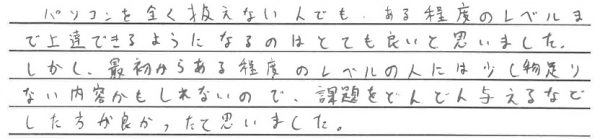 パソコンを全く扱えない人でも、ある程度のレベルま
で上達できるようになるのはとても良いと思いました。
しかし、最初からある程度のレベルの人には少し物足り
ない内容かもしれないので、課題をどんどん与えるなど
した方が良かったと思いました。